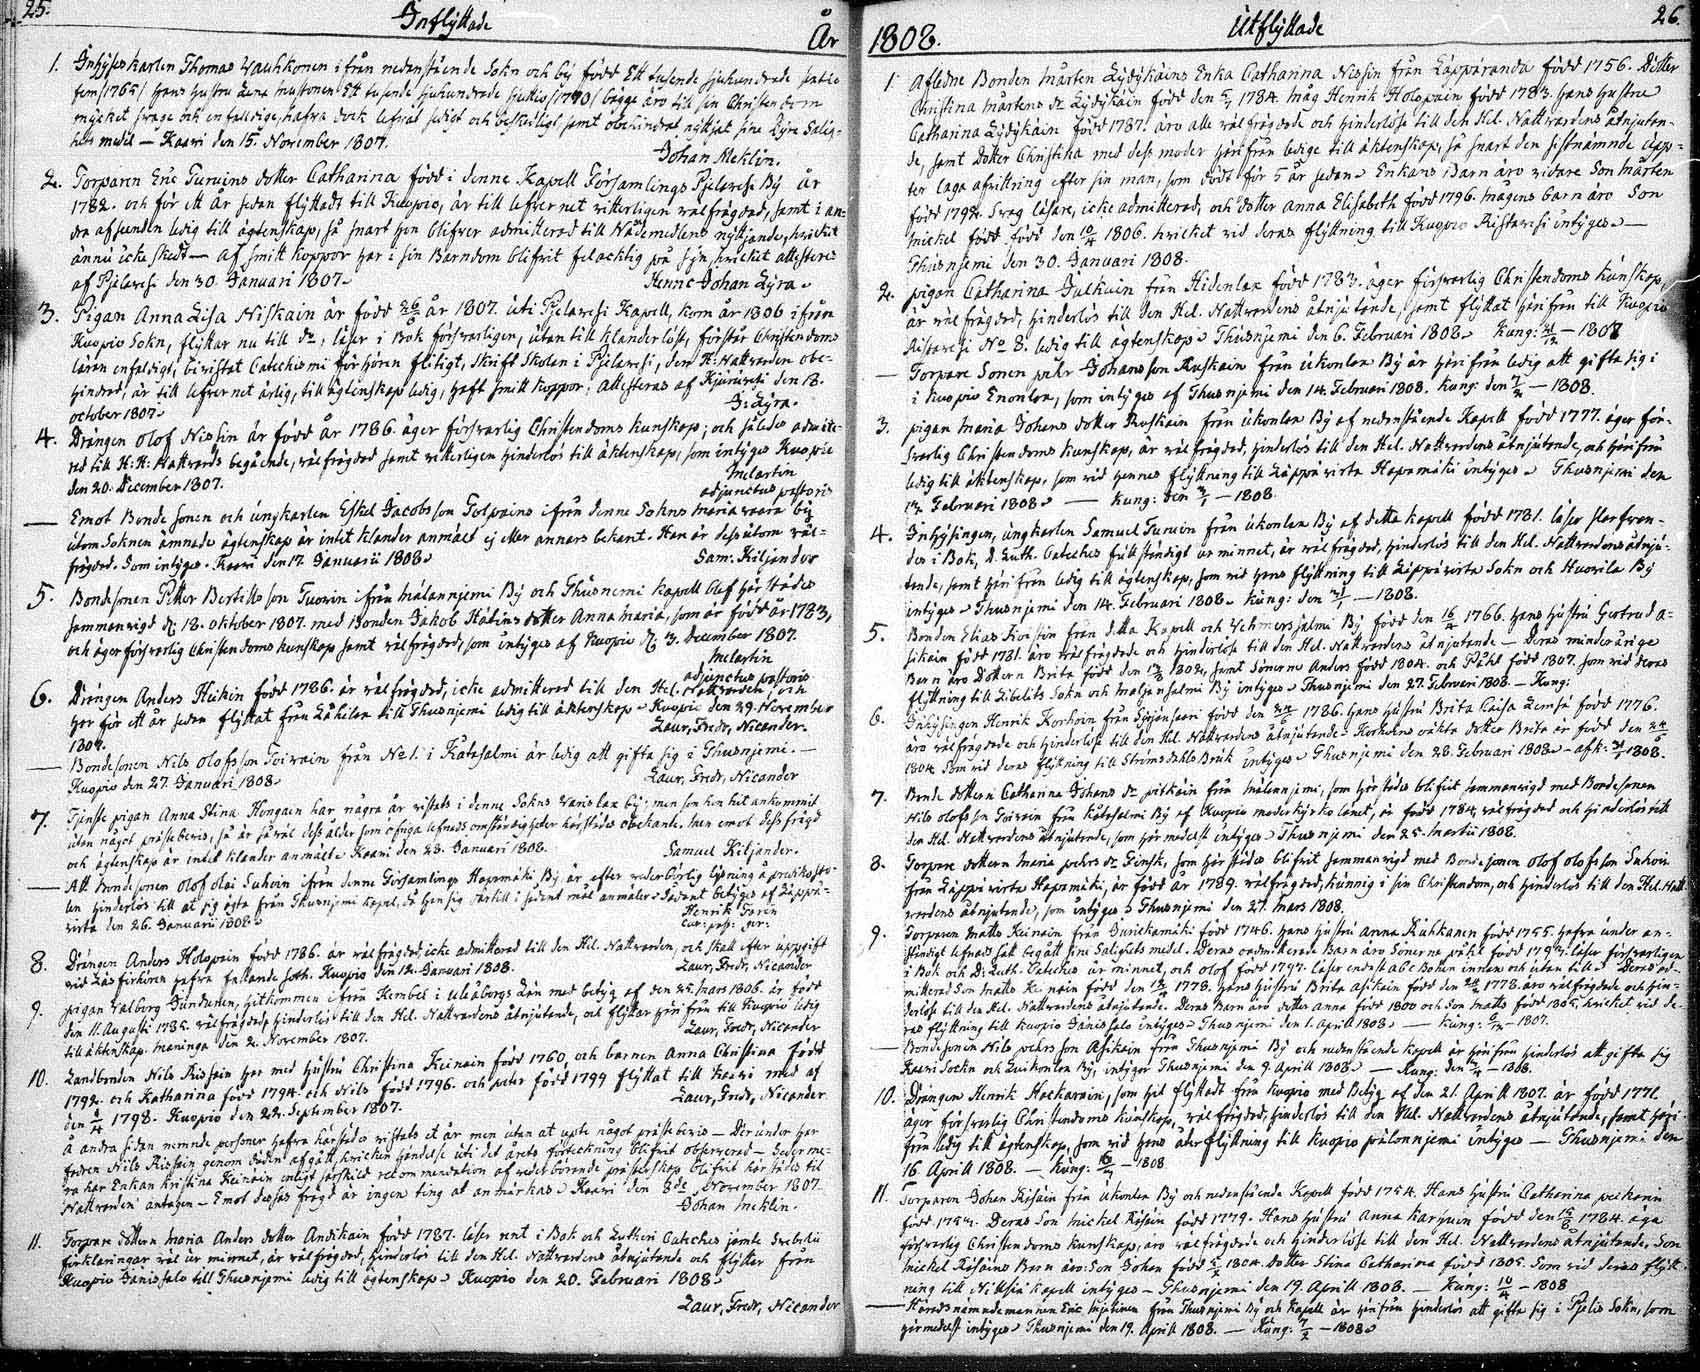 25.
Inflyttade
År
1. Inhyseskarlen Thomas Wauhkonen ifrån nedenstående Sokn och by född Ett tusende sjuhundrade sextio
fem /1765/ hans hustru Lena Mustonen Ett tusende sjuhundrade sjuttio /1770/ bägge äro till sin Christendom
mycket svage och enfaldige, hafva dock lefvat sedigt och beskedligt samt obehindrat nyttjat sine Dyre Salig-
hets medel — Kaavi den 15. November 1807.
Johan Meklin.
2. Torparen Eric Turvins dotter Catharina född i denne Kapell Församlings Pjelavesi By år
1782. och för ett år sedan flyttadt till Kuopio, är till lefvernet vitterligen välfrägdad, samt i an-
dra afseenden ledig till ägtenskap, så snart hon blifver admitterad till Nådemedlens nyttjande, hvilcket
ännu icke skedt — af smitt koppor har i sin Barndom blifvit felacktig på syn, hvilcket attesteres
af Pjelavesi den 30. Januari 1807.
Henric Johan Lyra.
3. Pigan Anna Lisa Niskain är född 26/6 år 1807. uti Pjelavesi Kapell, kom år 1806 ifrån
Kuopio Sokn, flyttar nu till do; läser i Bok försvarligen, utan till klanderlöst, förstår Christendoms
läran enfaldigt, bivistat Catechismi förhören flitigt, Skrift Skolen i Pjelavesi, den H: Nattvarden obe-
hindrad, är till lefvernet ärlig, till ägtenskap ledig, haft smitt koppor, attesteras af Kjuruvesi den 18.
October 1807.
J: Lyra.
4. Drängen Olof Nissin är född år 1786. äger försvarlig Christendoms kunskap; och således admitte-
red till H: H: Nattvards begående, välfrägdad samt vitterligen hinderlös till äktenskap, som intyges Kuopio
den 20. December 1807.
Melartin
adjunctus pastoris
— Emot Bonde sonen och ungkarlen Eskel Jacobsson Tolpains ifrån denne Sokns Mariavaara by
utom Soknen ämnade ägtenskap är intet klander anmält ej eller annars bekant. Han är dessutom väl-
frägdad. Som intyges. Kaavi den 17. Januarii 1808.
Sam: Kiljander
5. Bondesonen Petter Bertilsson Tuovin ifrån Mälannjemi By och Thusnemi kapell blef här städes
sammanvigd d. 18. Oktober 1807. med bonden Jakob Hålins dotter Anna Maria, som är född år 1783,
och äger försvarlig Christendoms kunskap samt välfrägdad, som intyges af Kuopio d. 3. December 1807.
Melartin
adjunctus pastoris
6. Drängen Anders Heikin född 1786. är välfrägdad, icke admitterad till den Hel. Nattvarden, och
har för ett år sedan flyttat från till Thusnjemi ledig till äktenskap. Kuopio den 29. November
1807.
Laur. Fredr. Nicander.
— Bondesonen Nils Olofsson Toivain från No 1. i Kotasalmi är ledig att gifta sig i Thusnjemi. —
Kuopio den 27. Januari 1808
Laur. Fredr. Nicander
7. Tjenste pigan Anna Stina Kongain har några år vistats i denne Sokns Varislax by; men som hon hit ankommit
utan något prästebevis, så är så väl dess ålder som öfriga lefnads omständigheter härstädes obekante. Men emot dess frägd
och ägtenskap är intet klander anmält. Kaavi den 28. Januari 1808.
Samuel Kiljander.
— Att Bondesonen Olof Olai Suhoin ifrån denne Församlings Hapamäki By är efter vederbörlig lysning å predikosto-
len hinderlös till at sig ägta från Thusnjemi Kapel, då han sig därtill i sådant mål anmäler Sådant betyges af Leppä-
virta den 26. Januarii 1808
Henrik Forén
8. Drängen Anders Holopain född 1786. är välfrägdad, icke admitterad till den Hel. Nattvarden, och skall efter uppgift
vid Läsförhören hafva fallande soth. Kuopio den 12. Januari 1808.
Laur. Fredr. Nicander
9. Pigan Valborg Junduren, hitkommen ifrån Kembele i Uleåborgs Län med betyg af den 25. Mars 1806. är född
den 11. Augusti 1785. välfrägdad, hinderlös till den Hel. Nattvardens åtnjutande, och flyttar här från till Kuopio ledig
till äktenskap. Maninga den 2. November 1807.
Laur. Fredr. Nicander
10. Landbonden Nils Rissain har med hustru Christina Keinain född 1760, och barnen Anna Christina född
1792. och Katharina född 1794. och Nils född 1796. och Peter född 1799 flyttat till Kaavi med af
den 1798. Kuopio den 22. September 1807.
Laur. Fredr. Nicander
Å andra sidan nemnde personer hafva härstädes vistats et år men utan at upte något prästebevis — Derunder har
fadren Nils Rissain genom döden afgått, hvilcken händelse uti det årets förteckning blifvit observerad —
ra har Enkan Kristina Keinain enligt särskild recommendation af vederbörande prästerskap blifvit härstädes til
Nattvarden antagen — Emot dessas frägd är ingen ting at anmärkas. Kaavi den 8de November 1807.
Johan Meklin.
11. Torpare dottern Maria Anders dotter Andikain född 1787. läser rent i Bok och Lutheri Catechis jämte Svebelii
förklaringar väl ur minnet, är välfrägdad, hinderlös till den Hel. Nattvardens åtnjutande och flytter från
Kuopio Jänissalo till Thusnjemi ledig till ägtenskap. Kuopio den 20. Februari 1808.
Laur. Fredr. Nicander
1808.
Utflyttade
26.
1. Aflidne Bonden Mårten Lydykäins Enka Catharina Nissin från Läppäranda född 1756. Dotter
Christina Mårtens dr Lydykäin född den 1784. Måg Henrik Holopain född 1783. Hans hustru
Catharina Lydykäin född 1787. äro alle välfrägdade och hinderlöse till den Hel. Nattvardens åtnjutan-
de, samt dotter Christina med dess moder härifrån ledige till äktenskap, så snart den sistnämnde upp-
ter laga afvittring efter sin man, som dödt för 5 år sedan. Enkans Barn äro vidare Son Mårten
född 1792. Svag läsare, icke admitterad, och dotter Anna Elisabeth född 1796. Mågens barn äro Son
Mickel född född den 10/4 1806. hvilcket vid deras flyttning till Kuopio Ristavesi intyges. —
Thusnjemi den 30. Januari 1808.
2. Pigan Catharina Julkuin från Hidenlax född 1783. äger försvarlig Christendoms kunskap,
är välfrägdad, hinderlös till den Hel. Nattvardens åtnjutande, samt flyttat härifrån till Kuopio
Ristavesi No 8. ledig till ägtenskap. Thusnjemi den 6. Februari 1808. Kung: — 1807
— Torpare Sonen Pehr Johansson Ruskain från Ukonlax By är härifrån ledig att gifta sig i
i Kuopio Enonlax, som intyges af Thusnjemi den 14. Februari 1808. Kung: den — 1808.
3. Pigan Maria Johans dotter Ruskain från Ukonlax By af nedenstående Kapell född 1777. äger för-
svarlig Christendoms kunskap, är välfrägdad, hinderlös till den Hel. Nattvardens åtnjutande, och härifrån
ledig till äktenskap, som vid hennes flyttning till Läppävirta Hapamäki intyges. Thusnjemi den
Februari 1808. — Kung: den — 1808.
4. Inhysingen, ungkarlen Samuel Turvin från Ukonlax By af detta kapell född 1781. läser
der i Bok, D. Luth. Catechis fullständigt ur minnet, är välfrägdad, hinderlös till den Hel. Nattvardens åtnju-
tande, samt härifrån ledig till ägtenskap, som vid hans flyttning till Läppävirta Sokn och Huovila By
intyges. Thusnjemi den 14. Februari 1808. Kung: den — 1808.
5. Bonden Elias Koistin från detta Kapell och Vehmersalmi By född den 16/4 1766. Hans hustru Gertrud A-
sikain född 1781. äro välfrägdade och hinderlöse till den Hel. Nattvardens åtnjutande — Deras minderårige
Barn äro Dottern Brita född den 1802, samt Sönerne Anders född 1804. och Påhl född 1807. Som vid deras
flyttning till Libelits Sokn och Maljansalmi By intyges. Thusnjemi den 27. Februari 1808 — Kung:
6. Inhysingen Henrik Korhoin från född den 1786. hans hustru Brita Caisa Lemsä född 1776.
äro välfrägdade och hinderlöse till den Hel. Nattvardens åtnjutande. Korhoins äkta dotter Brita är född den
1804. Som vid deras flyttning till Strömsdahls Bruk intyges Thusnjemi den 28. Februari 1808 — afsk: 1808.
7. Bonde dottern Catharina Johans dr Pitkäin från Mälannjemi, som här städes blifvit sammanvigd med Bondesonen
Nils Olofsson Toivain från Kotasalmi By af Kuopio moderkyrko länet, är född 1784, välfrägdad och hinderlös till
den Hel. Nattvardens åtnjutande, som här medelst intyges. Thusnjemi den 25. Martii 1808.
8. Torpare dottern Maria Pehrs dr Finsk, som här städes blifvit sammanvigd med Bondesonen Olof Olofsson Suhoin
från Läppävirta Hapamäki, är född år 1789. välfrägdad, kunnig i sin Christendom, och hinderlös till den Hel. Natt-
vardens åtnjutande, som intyges. Thusnjemi den 27. Mars 1808.
9. Torparen Matts Keinain från Jurickamäki född 1746. hans hustru Anna Ruhkanen född 1755. hafva under an-
ständigt lefnads sätt begått sine Salighets medel. Deras oadmitterade Barn äro Sönerne Påhl född 1794. läser försvarligen
i Bok och D: Luth. Catechis ur minnet, och Olof född 1797. läser endast abc Boken innan och utan till. Deras ad-
mitterad Son Matts Keinain född den 1778. Hans hustru Brita Asikain född den 1778. äro välfrägdade och hin-
derlöse till den Hel. Nattvardens åtnjutande. Deras Barn äro dotter Anna född 1800 och Son Matts född 1805, hvilcket vid de-
ras flyttning till Kuopio Jänissalo intyges. Thusnjemi den 1. Aprill 1808. — Kung: — 1807.
— Bondesonen Nils Pehrsson Asikain från Thusnjemi By och nedenstående kapell är härifrån hinderlös att gifta sig
Kaavi Sockn och Luikonlax By, intyger Thusnjemi den 9. Aprill 1808. — Kung: den — 1808.
10. Drängen Henrik Hackarain, som hit flyttadt från Kuopio med Betyg af den 21. Aprill 1807. är född 1771.
äger försvarlig Christendoms kunskap, välfrägdad, hinderlös till den Hel. Nattvardens åtnjutande, samt häri-
från ledig till ägtenskap, som vid hans återflyttning till Kuopio Pölönnjemi intyges — Thusnjemi den
16. Aprill 1808. — Kung: — 1808
11. Torparen Johan Räsäin från Ukonlax By och nedenstående Kapell född 1754. Hans hustru Catharina
född 1754. Deras Son Mickel Räsäin född 1779. Hans hustru Anna Karhuin född den 1784. äga
försvarlig Christendoms kunskap, äro välfrägdade och hinderlöse till den Hel. Nattvardens åtnjutande. Son
Mickel Räsäins Barn äro: Son Johan född 1804. Dotter Stina Catharina född 1805. Som vid deras flytt-
ning till Nilsiä kapell intyges — Thusnjemi den 19. Aprill 1808. — Kung: 10/4 — 1808
— Härads nämndemannen Eric från Thusnjemi By och Kapell är härifrån hinderlös att gifta sig i Pjelis Sokn, som
härmedelst intyges. Thusnjemi den 19. Aprill 1808. — Kung: — 1808.